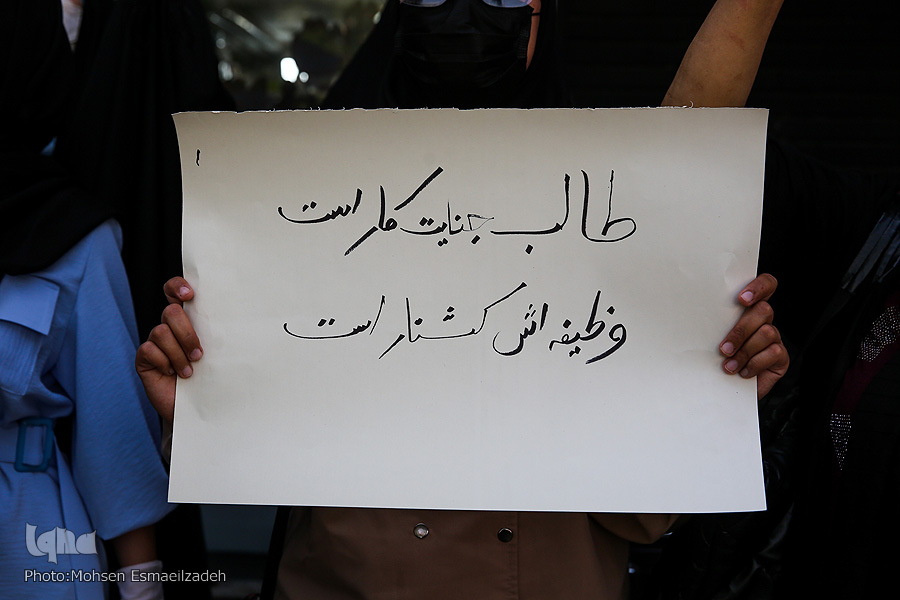 طالب جنایت کار است
وظیفه اش کشتار است
iqna
Photo:Mohsen Esmaeilzadeh